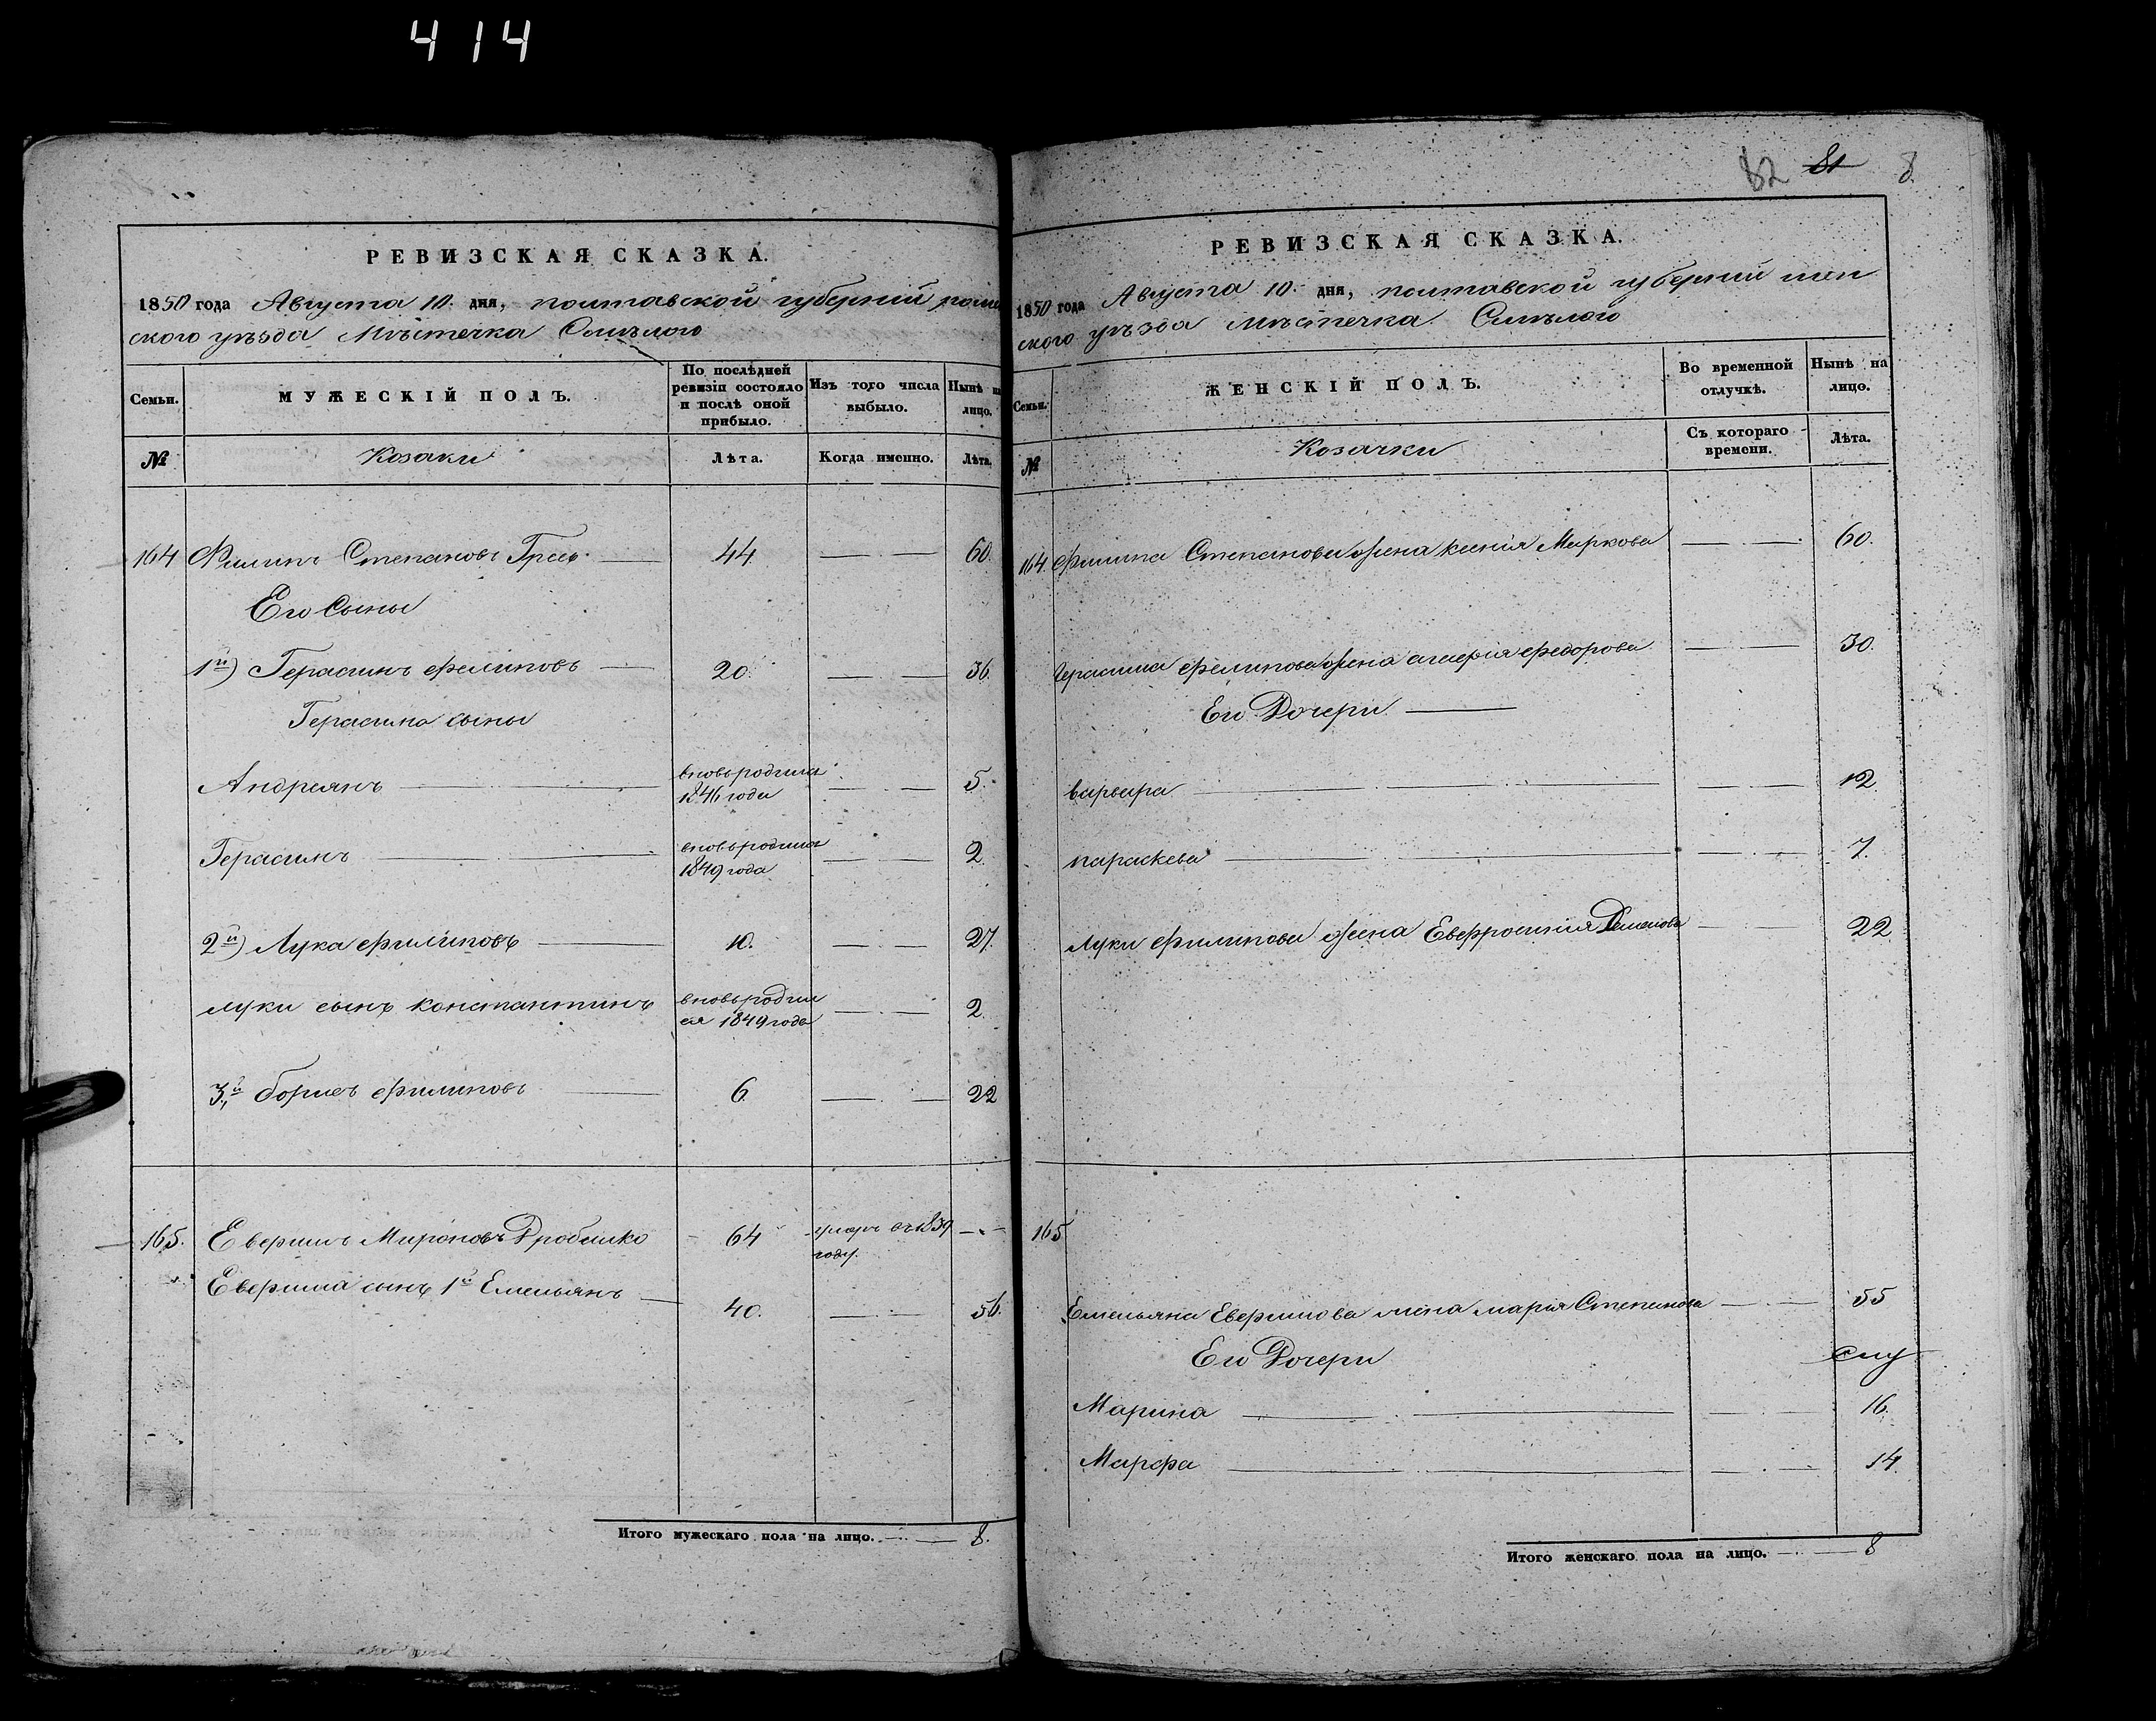 414
РЕВИЗСКАЯ СКАЗКА.
1850 года Августа 10. дня, полтавской губерніи роме
ского уѣзда Мѣстечка Смѣлого
Семьи.
МУЖЕСКІЙ ПОЛЪ.
По послѣдней ревизіи состояло и послѣ оной прибыло.
Изъ того числа выбыло.
Нынѣ на лицо.
№
Козаки
Лѣта.
Когда именно.
Лѣта.
164 Филипъ Степановъ 44. 60.
Его Сыны
1й) Герасимъ Филиповъ 20. 36.
Герасима сыны
Андреянъ вновьродился 1846 года 5.
Герасимъ вновьродился 1849 года 2.
2й) Лука Филиповъ 10. 27.
луки сынъ константинъ вновьродил ся 1849 года 2.
3й борисъ Филиповъ 6. 22
165. Евфимъ Мироновъ 64 умеръ въ 1839 году.
Евфима сынъ 1й Емельянъ 40. 56.
Итого мужескаго пола на лицо. 8.
82 81 8.
РЕВИЗСКАЯ СКАЗКА.
1850 года Августа 10. дня, полтавской губерніи
ского уѣзда мѣстечка Смѣлого
Семьи.
ЖЕНСКІЙ ПОЛЪ.
Во временной отлучкѣ.
Нынѣ на лицо.
№
Козачки
Съ котораго времени.
Лѣта.
164. Филипа Степанова жена ксенія Маркова 60.
Герасима Филипова жена Федорова 30.
Его Дочери
варвара 12.
параскева 7.
Луки Филипова жена Евфросинія 22
165
Емельяна Евфимова жена марія Степанова 55
Его Дочери
Марина 16.
Марфа 14.
Итого женскаго пола на лицо. 8